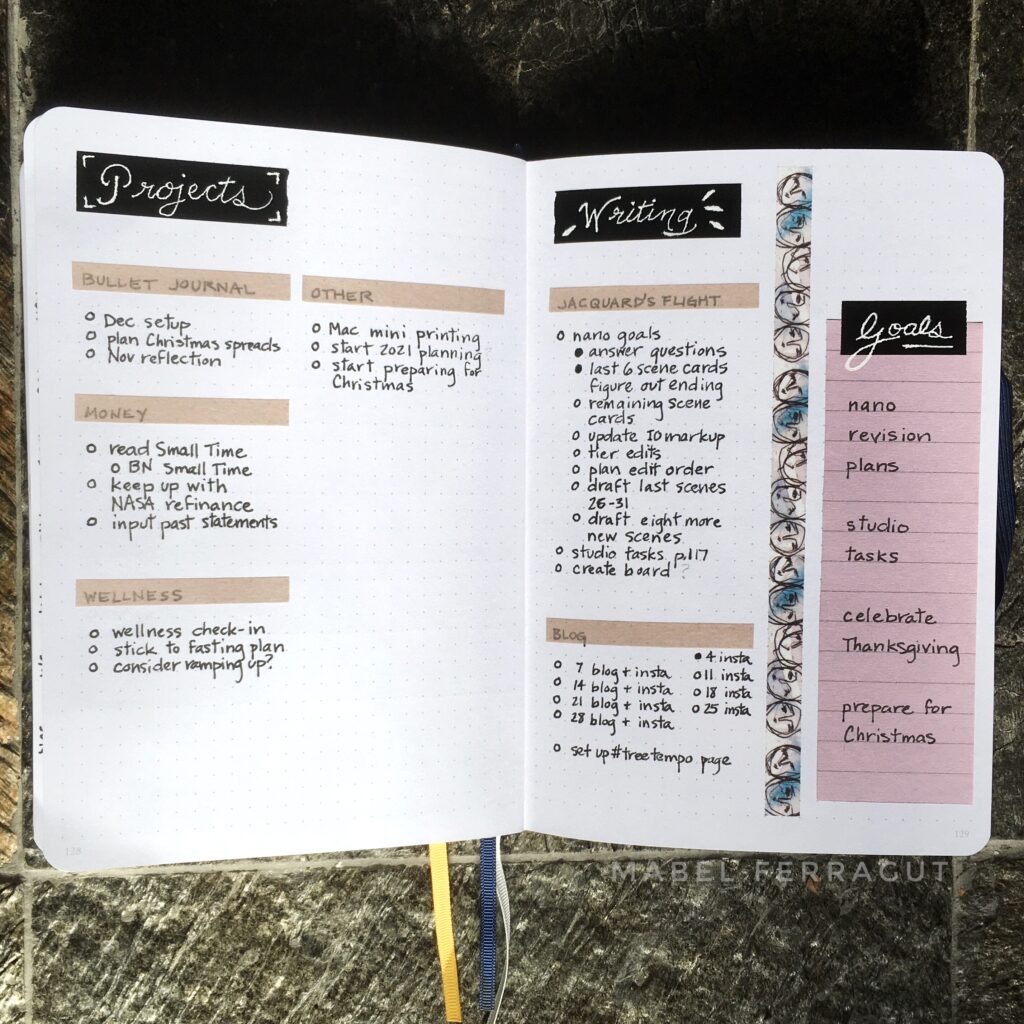 Projects
BULLET JOURNAL
o Dec setup
o plan Christmas spreads
o Nov reflection
MONEY
o read Small Time
o BN Small Time
o keep up with
NASA refinance
o input past statements
WELLNESS
o wellness check-in
o stick to fasting plan
o consider ramping up?
OTHER
o Mac mini printing
o start 2021 planning
o start preparing for
Christmas
128
Writing
JACQUARD'S FLIGHT
o nano goals
• answer questions
• last 6 scene cards
figure out ending
o remaining scene
cards
o update IO markup
o tier edits
o plan edit order
o draft last scenes
26-31
o draft eight more
new scenes
o studio tasks p.117
o create board ?
BLOG
o 7 blog + insta
o 14 blog + insta
o 21 blog + insta
o 28 blog + insta
• 4 insta
o 11 insta
o 18 insta
o 25 insta
o set up #treetempo page
Goals
nano
revision
plans
studio
tasks
celebrate
Thanksgiving
prepare for
Christmas
129
MABEL FERRAGUT